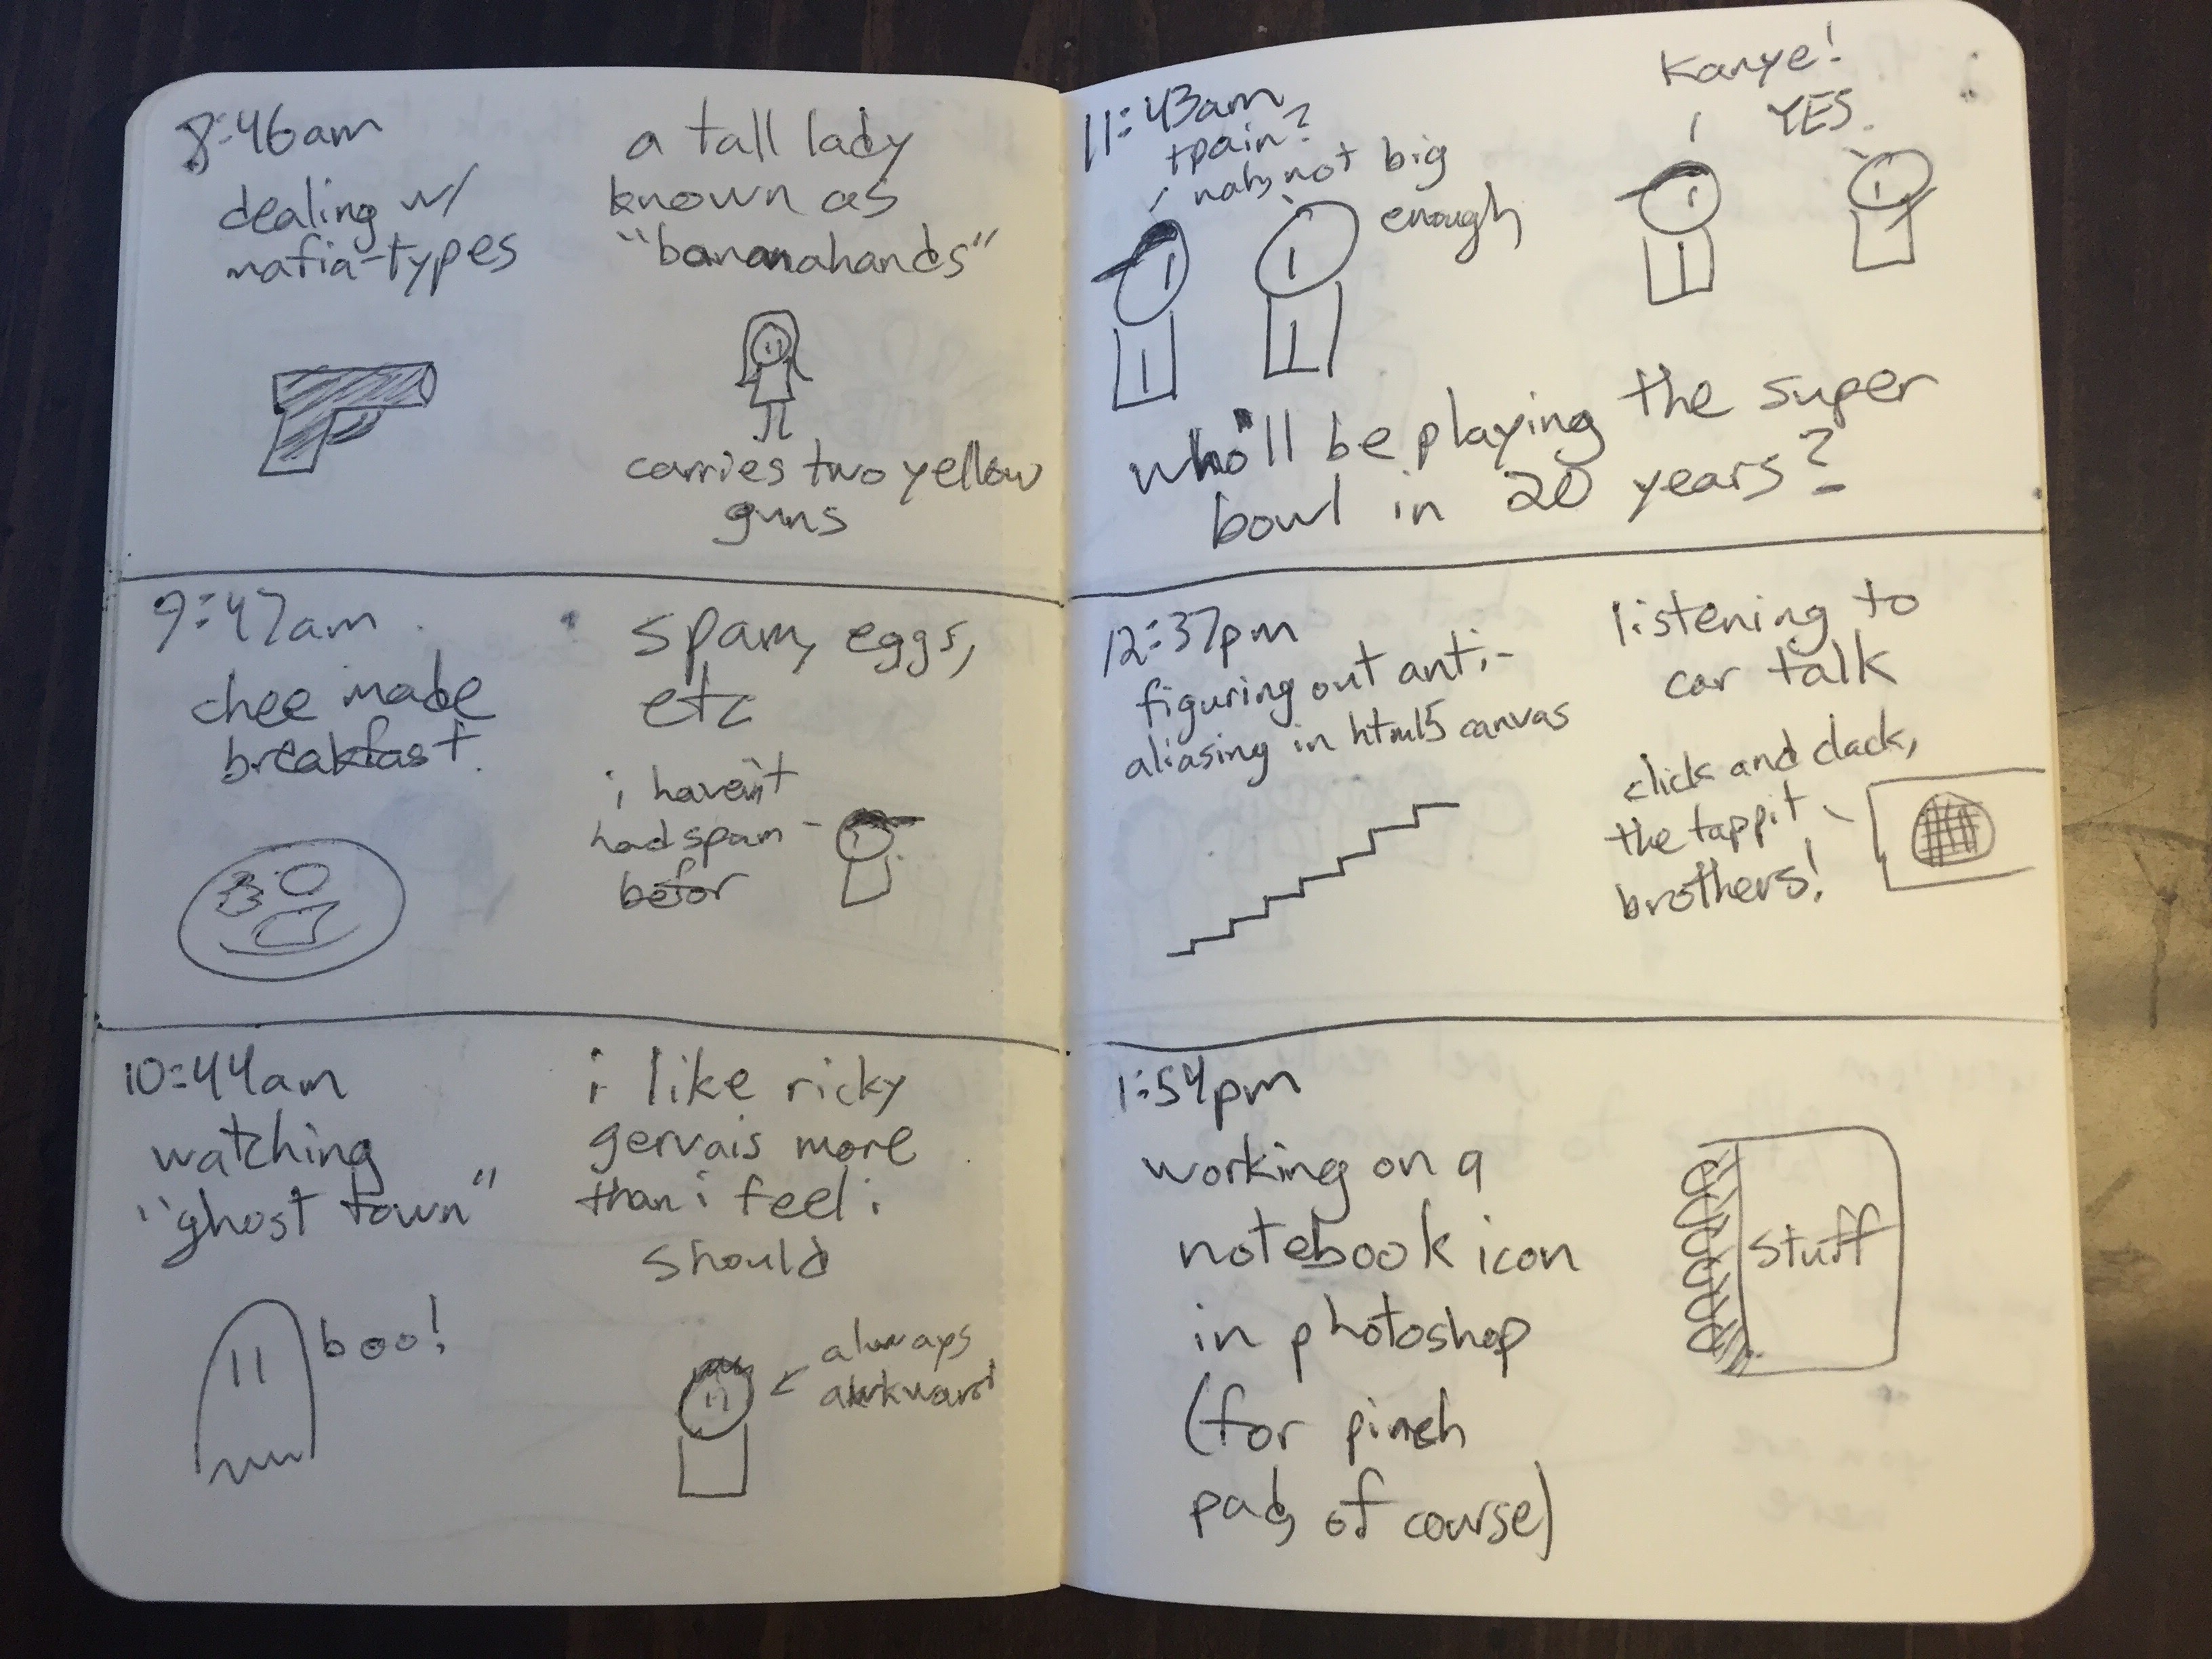 8:46am
dealing w/
mafia-types
a tall lady
known as
"bananahands"
carries two yellow
guns
9:47am
chee made
breakfast.
spam, eggs,
etc
i haven't
had spam
befor
10:44am
watching
"ghost town"
boo!
i like ricky
gervais more
than i feel i
should
always
awkward
11:43am
tpain?
nah, not big
enough
Kanye!
YES.
who'll be playing the super
bowl in 20 years?
12:37pm
figuring out anti-
aliasing in html5 canvas
listening to
car talk
click and clack,
the tappit
brothers!
1:54pm
working on a
notebook icon
in photoshop
(for pinch
pad, of course)
stuff